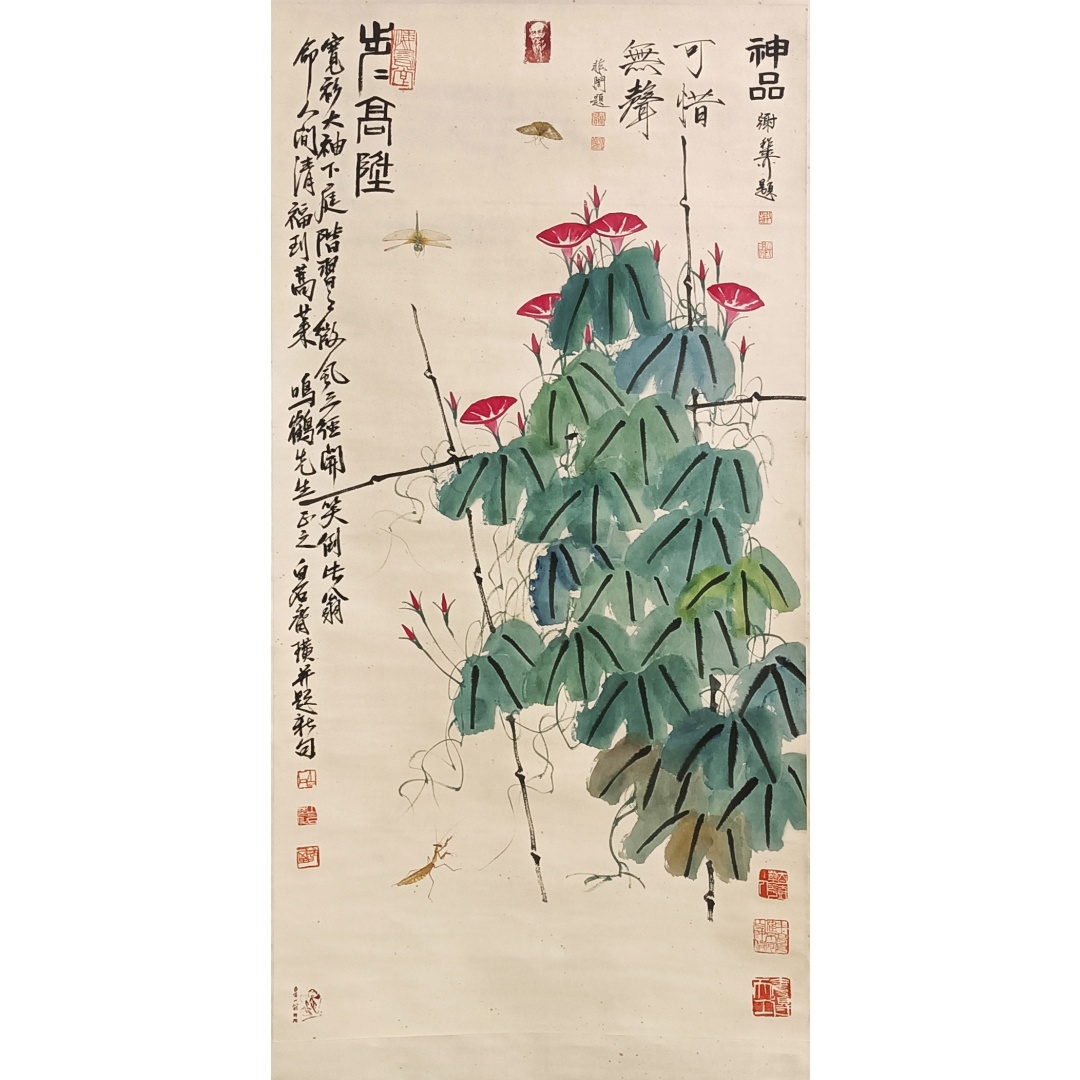 神品
題
可惜
無聲
非闇題
步〻高陞
寬衫大袖下庭階習〻微風三徑開笑倒此翁
命人間清福到蒿萊 鳴鶴先生正之 白石齊璜并題新句